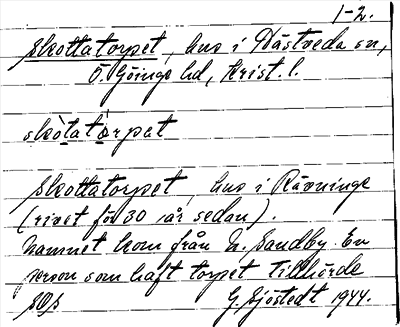 1-2.
Skottatorpet, hus i Hästveda sn,
Ö. Göinge hd, Krist. l.
skòtatå̀rpat
Skottatorpet, hus i Rävninge
(rivet för 30 år sedan).
Namnet kom från N. Sandby. En
person som haft torpet tillhörde
G. Sjöstedt 1944.